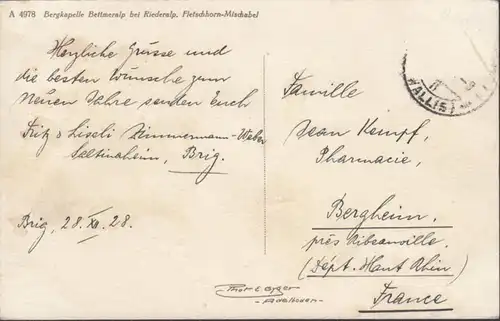 A 4978 Bergkapelle Bettmeralp bei Riederalp. Fletschhorn-Mischabel
Herzliche Grüsse und
die besten Wünsche zum
Neuen Jahre senden Euch
Fritz & Liseli Zimmermann-Weber
Saltinaheim, Brig.
Brig, 28. XII. 28.
WALLIS
Famille
Jean Kempf,
Pharmacie,
Bergheim,
près Ribeauville.
(Dépt. Haut Rhin)
France
Phot E Gyger
-Adelboden-